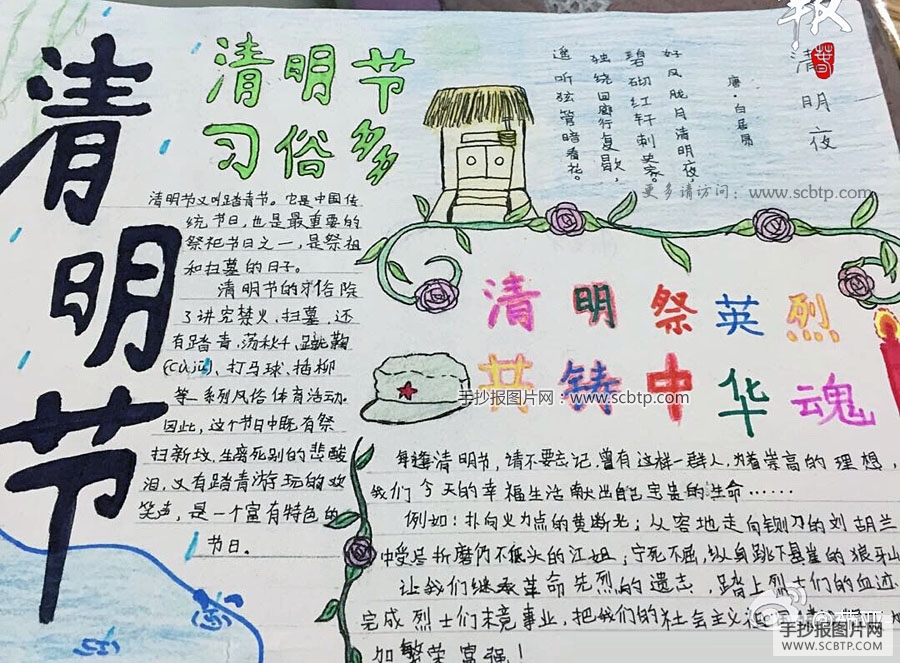 清明节
清明节
习俗多
清明节又叫踏青节。它是中国传
统节日,也是最重要的
祭祀节日之一,是祭祖
和扫墓的日子。
清明节的习俗除
了讲究禁火、扫墓,还
有踏青、荡秋千、跳鞠
打马球、插柳
等一系列风俗体育活动。
因此,这个节日中既有祭
扫新坟,生离死别的悲酸
泪,又有踏青游玩的欢
笑声,是一个富有特色的
节日。
报
清明夜
唐·白居易
好风胧月清明夜,
碧砌红轩刺史家。
独绕回廊行复歇,
遥听弦管暗看花。
更多请访问:www.scbtp.com
清明祭英烈
共铸中华魂
手抄报图片网:www.scbtp.com
每逢清明节,请不要忘记,曾有这样一群人,为着崇高的理想,
我们今天的幸福生活献出自己宝贵的生命……
例如:扑向火力点的黄
从容地走向铡刀的刘胡兰
中受尽折磨仍不低头的江姐;宁死不屈,纵身跳下悬崖的狼牙山
让我们继承革命先烈的遗志,踏上烈士们的血迹
完成烈士们未竟事业,把我们的社会主义
加繁荣富强!
手抄报图片网
WWW.SCBTP.COM